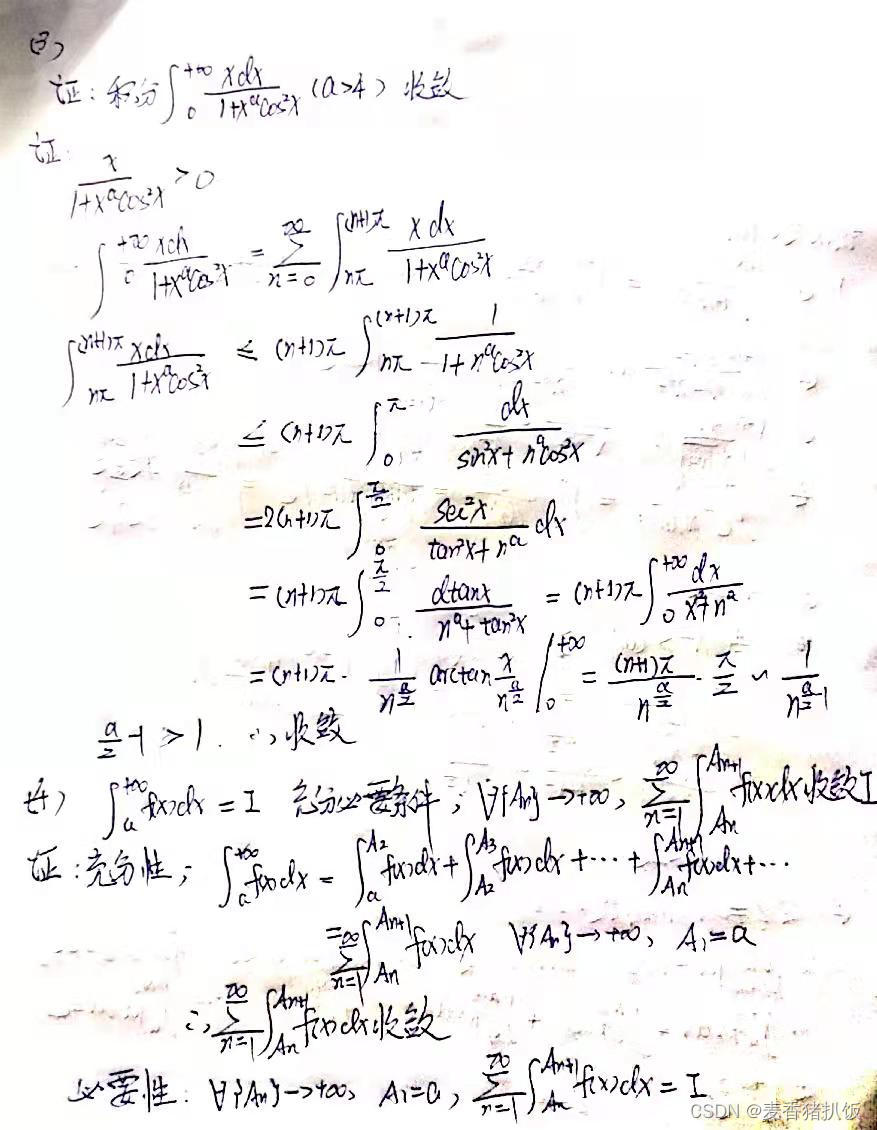 (3)
证: 积分∫_0^{+∞} xdx/(1+x^a cos²x) (a>4) 收敛
证:
x/(1+x^a cos²x) > 0
∫_0^{+∞} xdx/(1+x^a cos²x) = ∑_{n=0}^{∞} ∫_{nπ}^{(n+1)π} x dx/(1+x^a cos²x)
∫_{nπ}^{(n+1)π} xdx/(1+x^a cos²x) ≤ (n+1)π ∫_{nπ}^{(n+1)π} 1/(1+n^a cos²x)
≤ (n+1)π ∫_0^π dx/(sin²x+n^a cos²x)
=2(n+1)π ∫_0^{π/2} sec²x/(tan²x+n^a) dx
=(n+1)π ∫_0^{π/2} dtanx/(n^a+tan²x) = (n+1)π ∫_0^{+∞} dx/(x²+n^a)
=(n+1)π · 1/n^{a/2} arctan x/n^{a/2} |_0^{+∞} = (n+1)π/n^{a/2} · π/2 ∽ 1/n^{a/2-1}
a/2-1>1. ∴收敛
(4) ∫_a^{+∞} f(x)dx = I 充分必要条件; ∀{An}→+∞, ∑_{n=1}^{∞} ∫_{An}^{An+1} f(x)dx收敛I
证:充分性; ∫_a^{+∞} f(x)dx = ∫_a^{A2} f(x)dx+∫_{A2}^{A3} f(x)dx+⋯+∫_{An}^{An+1} f(x)dx+⋯
=∑_{n=1}^{∞} ∫_{An}^{An+1} f(x)dx ∀{An}→+∞, A1=a
∴∑_{n=1}^{∞} ∫_{An}^{An+1} f(x)dx收敛
必要性: ∀{An}→+∞, A1=a, ∑_{n=1}^{∞} ∫_{An}^{An+1} f(x)dx=I
CSDN @麦香猪扒饭